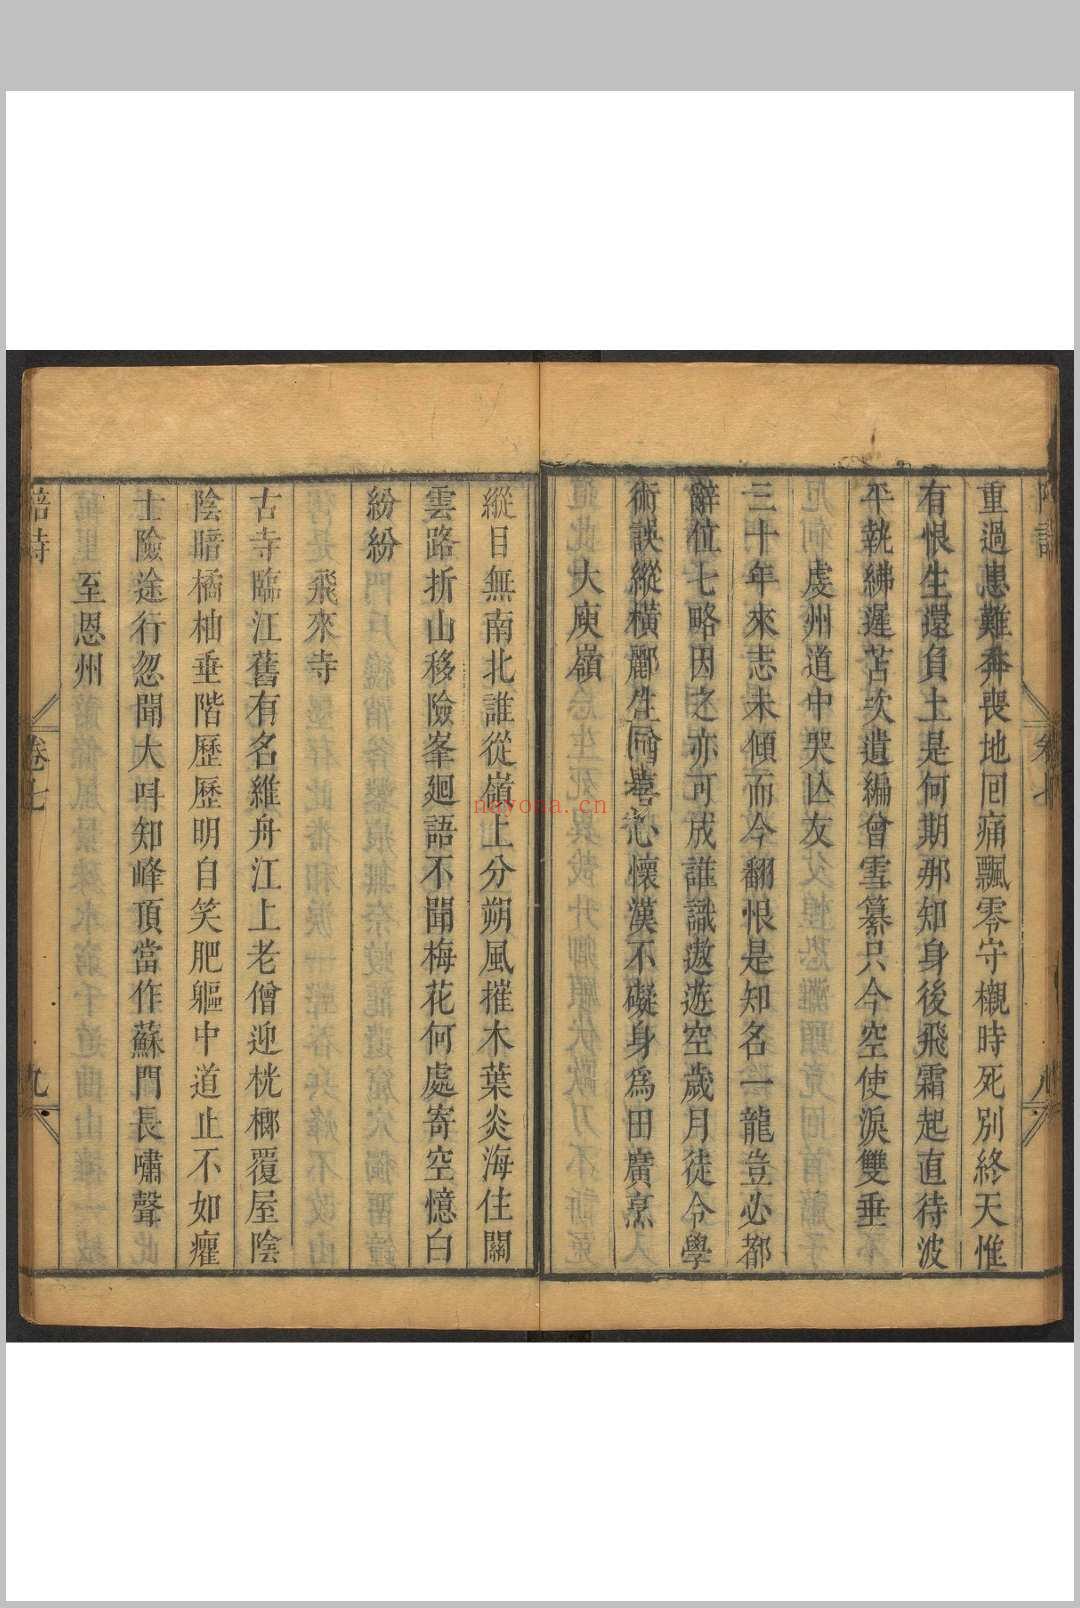 重過患難奔喪地回痛飄零守櫬時死別終天惟
有恨生還負土是何期那知身後飛霜起直待波
平執紼遲苫次遺編曾雪纂只今空使淚雙垂
虔州道中哭亾友
三十年來志未傾而今翻恨是知名一龍豈必都
辭位七略因之亦可成誰識遨遊空歲月徒令學
術誤縱橫酈生心懷漢不礙身為田廣烹
大庾嶺
縱目無南北誰從嶺上分朔風摧木葉炎海住關
雲路折山移險峯廻語不聞梅花何處寄空憶白
紛紛
飛來寺
古寺臨江舊有名維舟江上老僧迎桄榔覆屋陰
陰暗橘柚垂階歷歷明自笑肥軀中道止不如癯
士險途行忽聞大呌知峰頂當作蘇門長嘯聲
至恩州
卷七
九
nayona.cn